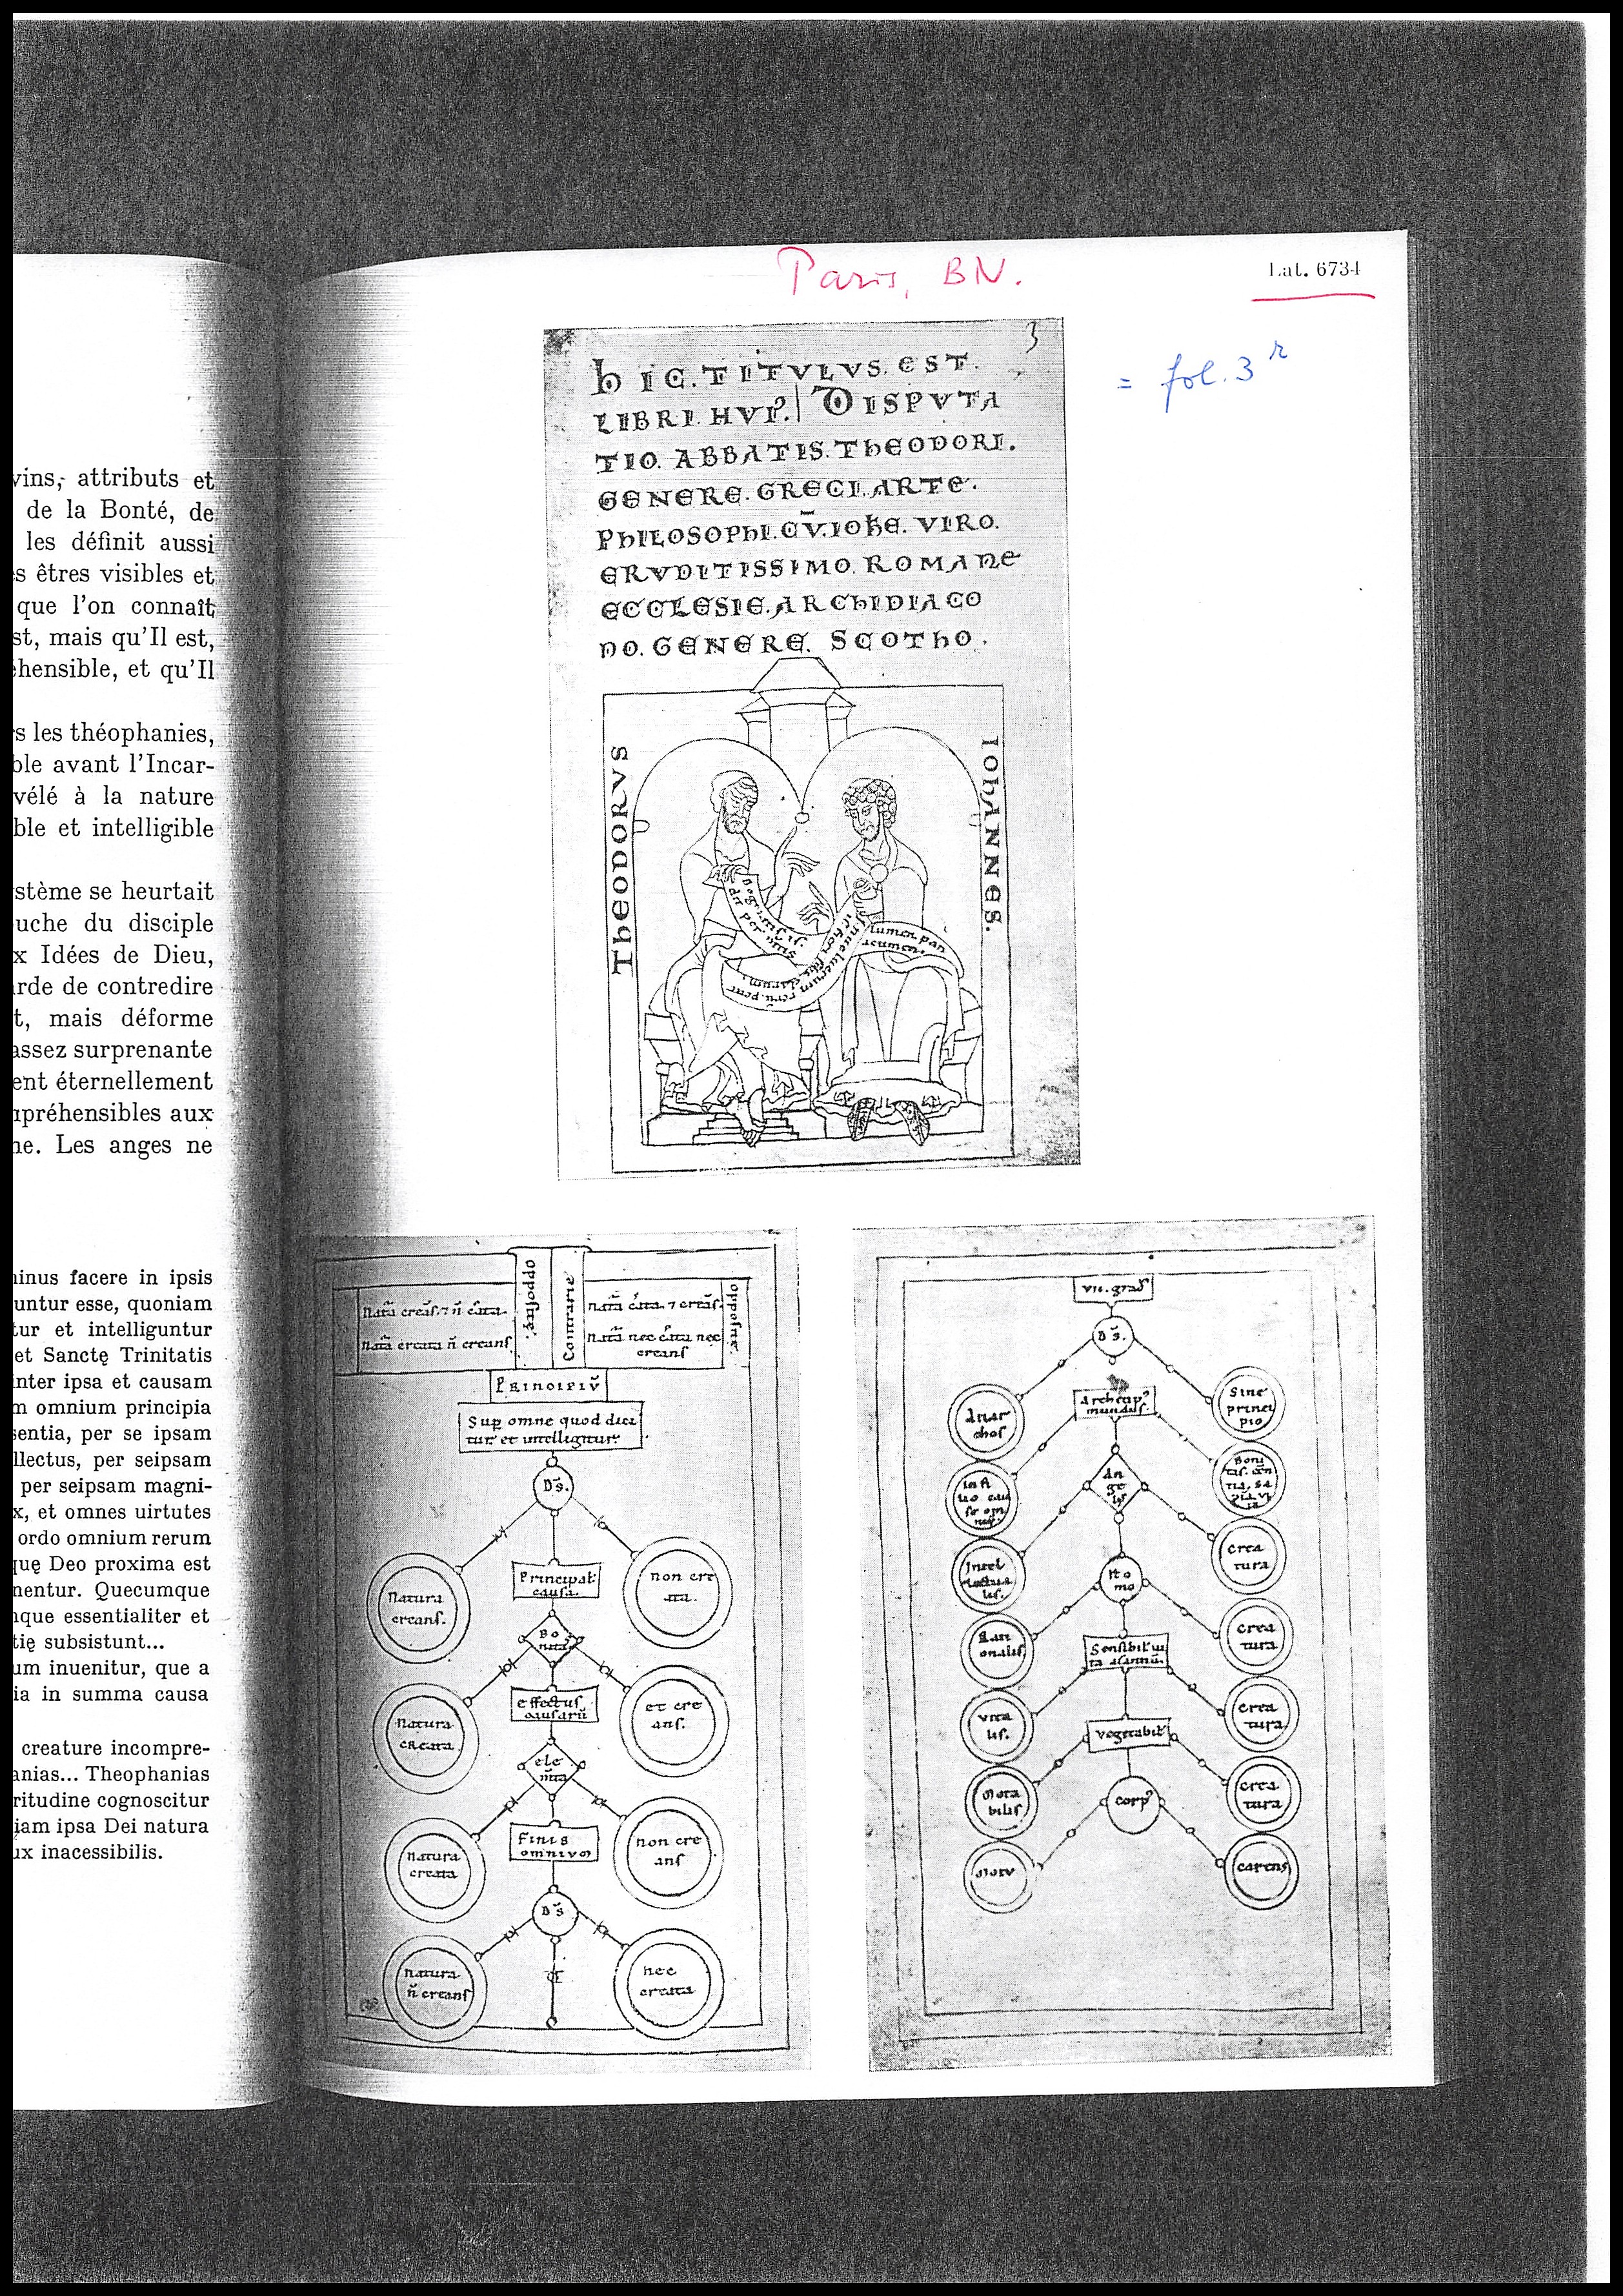 vins, attributs et
de la Bonté, de
les définit aussi
s êtres visibles et
que l'on connaît
st, mais qu'Il est,
éhensible, et qu'Il
s les théophanies,
ble avant l'Incar-
vélé à la nature
ble et intelligible
stème se heurtait
uche du disciple
x Idées de Dieu,
rde de contredire
t, mais déforme
assez surprenante
ent éternellement
mpréhensibles aux
ne. Les anges ne
inus facere in ipsis
untur esse, quoniam
tur et intelliguntur
et Sanctę Trinitatis
inter ipsa et causam
m omnium principia
sentia, per se ipsam
llectus, per seipsam
per seipsam magni-
x, et omnes uirtutes
ordo omnium rerum
quę Deo proxima est
nentur. Quecumque
nque essentialiter et
tię subsistunt...
um inuenitur, que a
ia in summa causa
creature incompre-
anias... Theophanias
ritudine cognoscitur
iam ipsa Dei natura
ux inacessibilis.
Paris, BN.
Lat. 6734
= fol. 3 r
3
hIC. TITVLVS. EST.
LIBRI. HVI9. DISPVTA
TIO. ABBATIS. ThEODORI.
GENERE. GRECI. ARTE.
PhILOSOPhI. CV̄. IOhE. VIRO.
ERVDITISSIMO. ROMANE
ECCLESIE. ARChIDIACO
NO. GENERE. SCOThO.
ThEODORVS
IOhANNES.
lumen pan
acumen
opposite
Contrarie
opposite
natā creata n̄ creans
creans
PRINCIPIV̄
Sup omne quod dici
tur et intelligitur
D̄s.
Natura
creans.
Principal
causa.
non cre
ata.
Bo
nita
natura
creata
effectus
causarū
et cre
ans.
ele
m̄ta
natura
creata
Finis
omnivm
non cre
ans
D̄s
natura
n̄ creans
nec
creata
VII. grad
D̄s.
Anar
chos
Archetip9
mundus.
Sine
princi
pio
An
ge
lus
Intel
lectua
lis.
crea
tura
Ho
mo
Rati
onalis
crea
tura
vita
lis.
crea
tura
vegetabil
Mota
bilis
crea
tura
corp9
Motu
carens